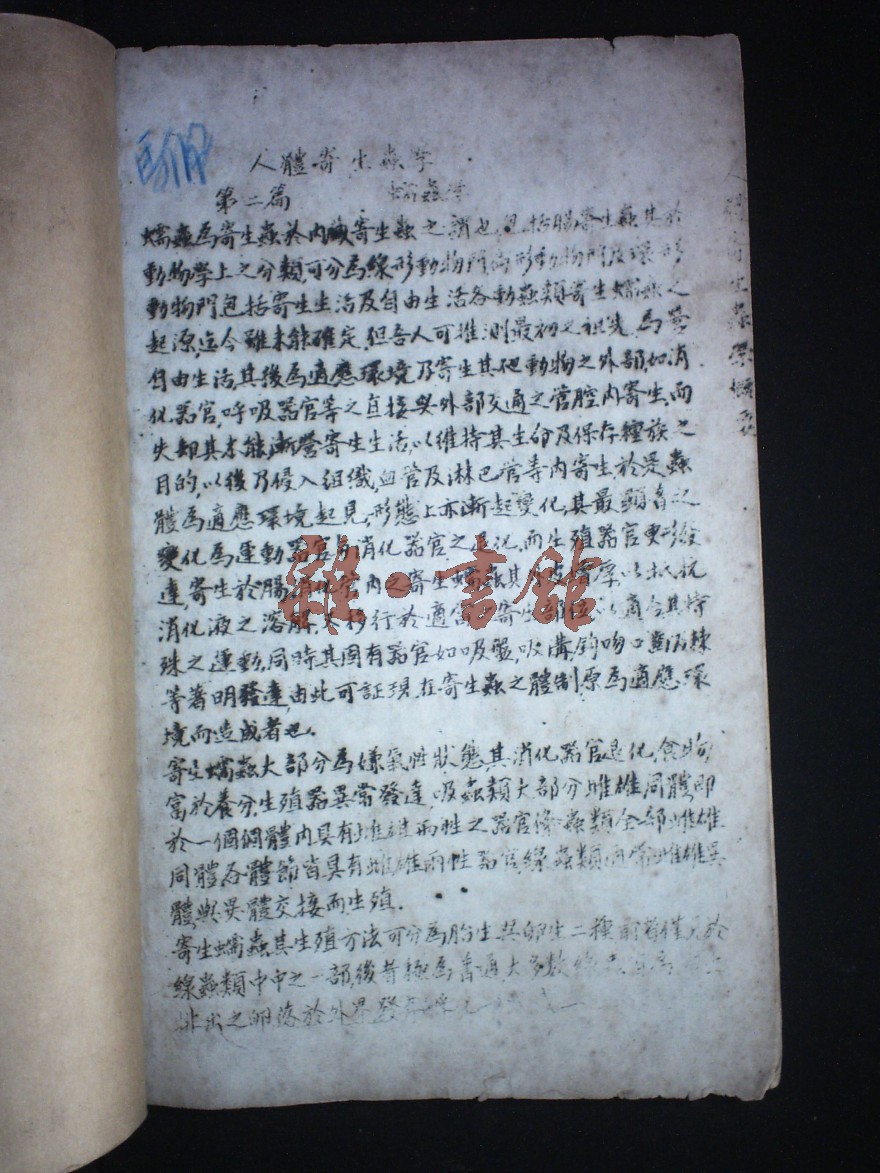 人體寄生蟲学
第二篇 蠕蟲
蠕蟲爲寄生蟲於内臟寄生蟲之謂也包括腸寄生蟲其於
動物學上之分類,可分爲線形動物門扁形動物門及環形
動物門包括寄生生活及自由生活各動蟲類寄生蠕蟲之
起源,迄今雖未能確定,但吾人可推測最初之祖先,爲營
自由生活,其後爲適應環境乃寄生其他動物之外部,如消
化器官,呼吸器官等之直接與外部交通之管腔内寄生,而
失却其本能,漸營寄生生活,以維持其生命及保存種族之
目的,以後乃侵入組織,血管及淋巴管等内寄生,於是蟲
體爲適應環境起見,形態上亦漸起變化,其最顯著之
變化爲運動器官及消化器官之退化,而生殖器官更形發
達,寄生於腸消化管内之寄生蠕蟲其外皮增厚,以抵抗
消化液之溶解,其移行於適當之寄生部位,以適合其特
殊之運動,同時其固有器官如吸盤,吸溝,鈎吻口囊及棘
等著明發達,由此可証現在寄生蟲之體制,原爲適應環
境而造成者也.
寄生蠕蟲大部分爲嫌氣性狀態其消化器官退化,食物
富於養分,生殖器異常發達,吸蟲類大部分雌雄同體,即
於一個個體内具有雌雄兩性之器官,條蟲類全部雌雄
同體各體節皆具有雌雄兩性器官,線蟲類通常雌雄異
體,與異體交接而生殖.
寄生蠕蟲其生殖方法可分爲胎生與卵生二種前者僅見於
線蟲類中中之一部,後者極爲普通大多數
排出之卵落於外界發育
人體寄生蟲學蠕蟲
雜·書館